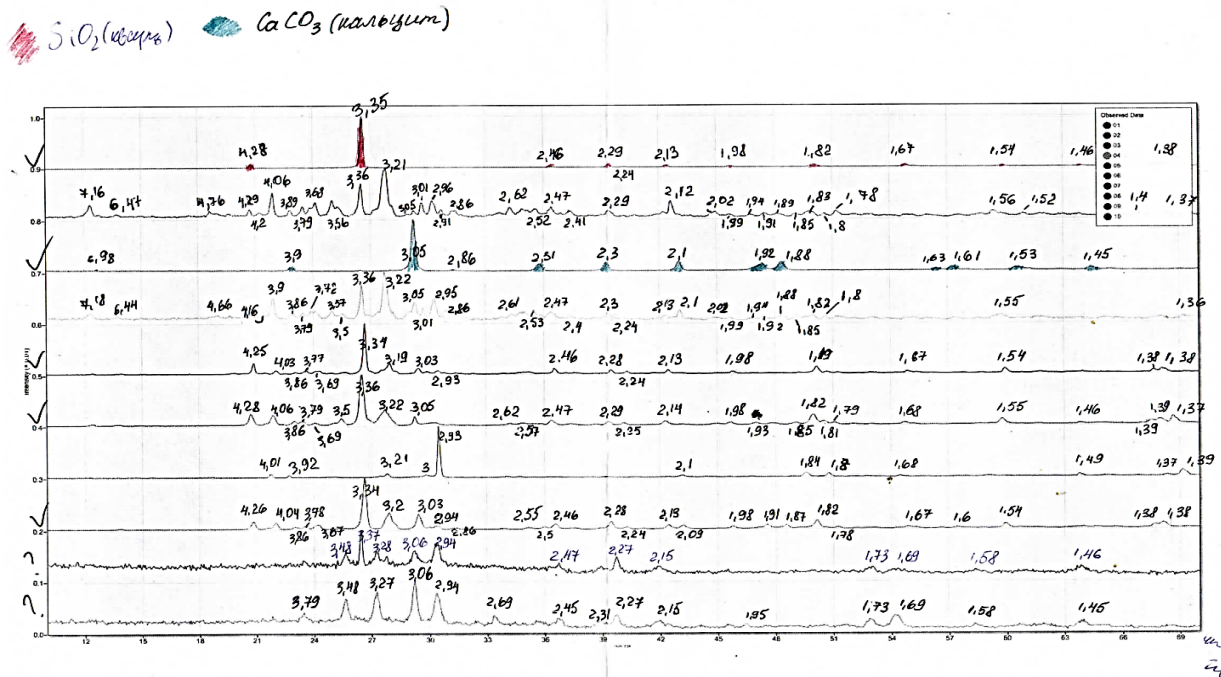 SiO2 (кварц) CaCO3 (кальцит)
3,35
4,28 2,46 2,29 2,13 1,98 1,82 1,67 1,54 1,46 1,38
2,24
7,16 6,47 4,76 4,29 4,06 3,89 3,68 3,36 3,21 3,01 2,96 2,86 2,62 2,47 2,29 2,12 2,02 1,94 1,89 1,83 1,78 1,56 1,52 1,4 1,37
4,2 3,79 3,56 2,91 2,52 2,41 1,99 1,91 1,85 1,8
6,98 3,9 3,05 2,86 2,51 2,3 2,1 1,92 1,88 1,63 1,61 1,53 1,45
7,18 6,44 4,66 4,16 3,9 3,86 3,72 3,57 3,36 3,22 3,05 2,95 2,86 2,61 2,47 2,3 2,13 2,1 2,02 1,94 1,88 1,82 1,8 1,55 1,36
3,79 3,5 3,01 2,53 2,4 2,24 1,99 1,92 1,85
4,25 4,03 3,77 3,34 3,19 3,03 2,46 2,28 2,13 1,98 1,67 1,54 1,38 1,38
3,86 3,69 2,93 2,24
4,28 4,06 3,79 3,5 3,36 3,22 3,05 2,62 2,47 2,29 2,14 1,98 1,82 1,79 1,68 1,55 1,46 1,39 1,37
3,86 3,69 2,57 2,25 1,93 1,85 1,81 1,39
4,01 3,92 3,21 3 2,93 2,1 1,84 1,8 1,68 1,49 1,37 1,39
4,26 4,04 3,78 3,34 3,2 3,03 2,94 2,55 2,46 2,28 2,13 1,98 1,91 1,87 1,82 1,67 1,6 1,54 1,38 1,38
3,86 3,67 2,86 2,5 2,24 2,09 1,78
? 3,48 3,37 3,28 3,06 2,94 2,47 2,27 2,15 1,73 1,69 1,58 1,46
? 3,79 3,48 3,27 3,06 2,94 2,69 2,45 2,31 2,27 2,15 1,95 1,73 1,69 1,58 1,45
Observed Data
01
02
03
04
05
06
07
08
09
10
1.0
0.9
0.8
0.7
0.6
0.5
0.4
0.3
0.2
0.1
0.0
12 15 18 21 24 27 30 33 36 39 42 45 48 51 54 57 60 63 66 69